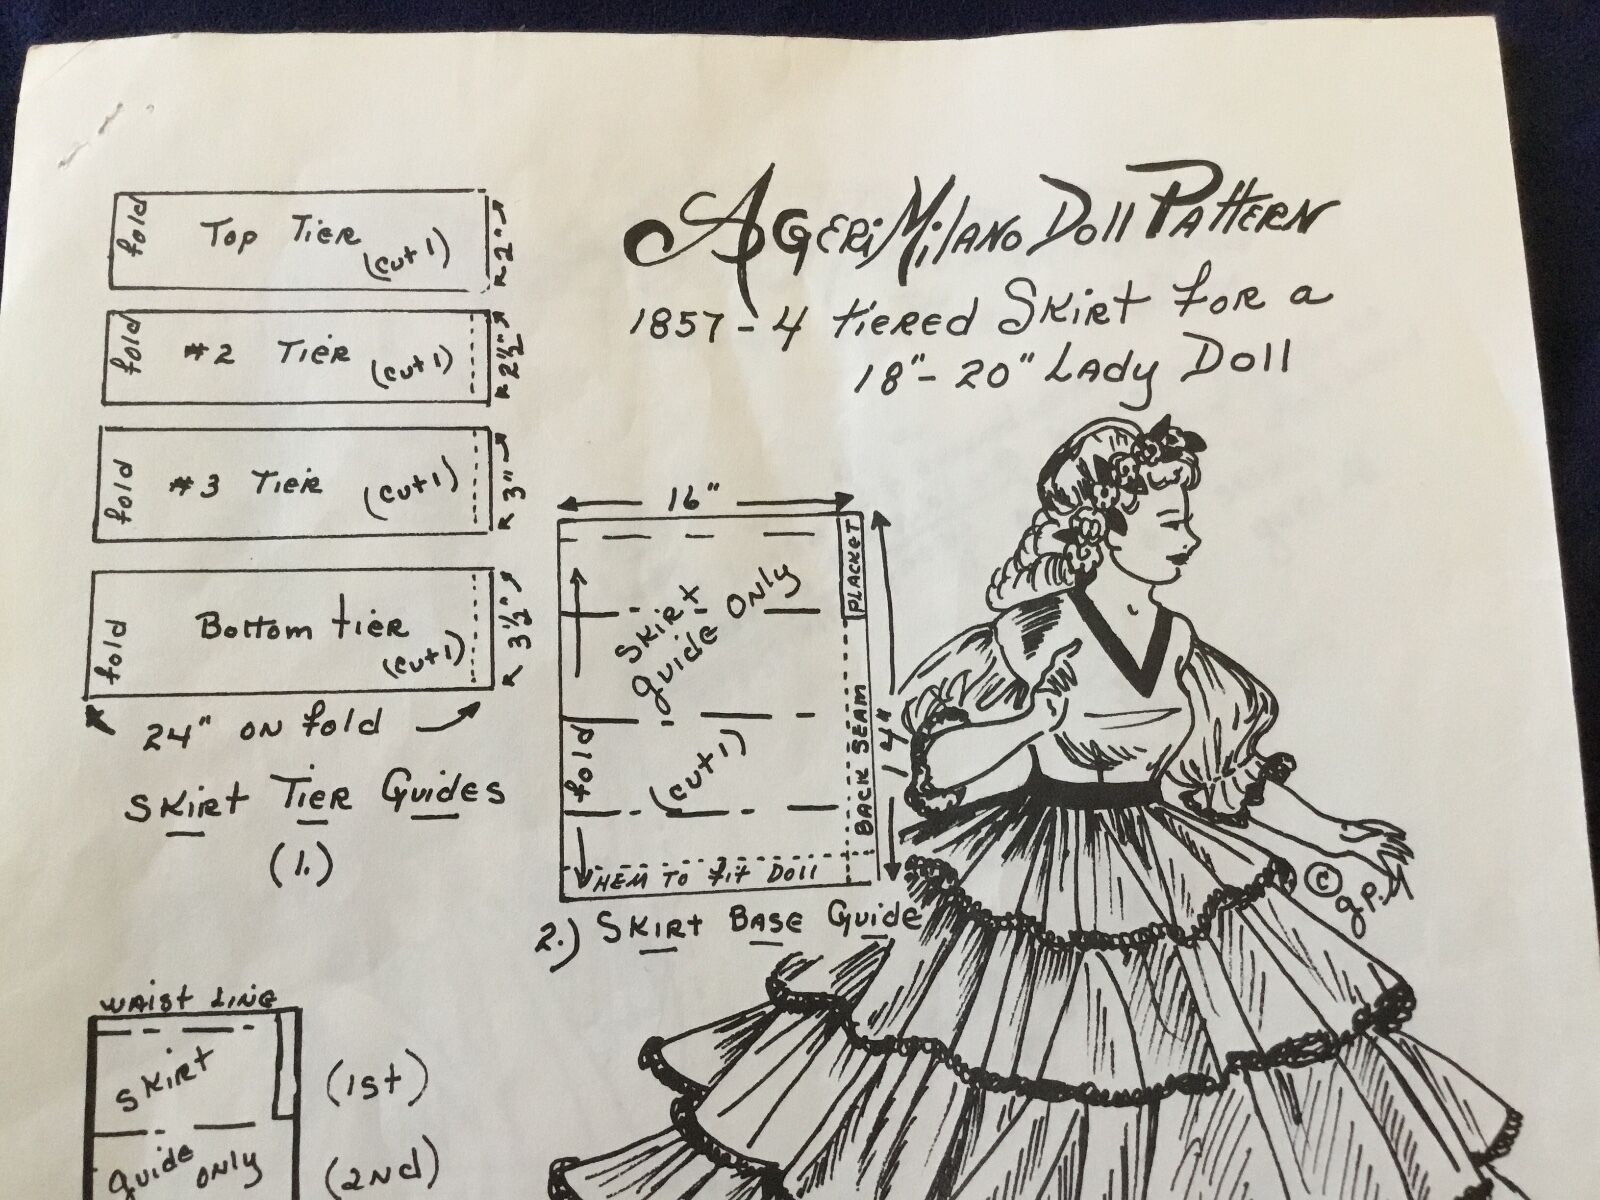 A GERI MILANO DOLL PATTERN
1857 - 4 tiered Skirt for a
18" - 20" Lady Doll
fold Top Tier (cut 1) 2"
fold #2 Tier (cut 1) 2½"
fold #3 Tier (cut 1) 3"
fold Bottom tier (cut 1) 3½"
24" on fold
Skirt Tier Guides
(1.)
16"
PLACKET
Skirt
guide only
14"
BACK SEAM
fold
(cut 1)
HEM TO fit Doll
2.) Skirt Base Guide
© g.P.M
WAIST LINE
Skirt
guide only
(1st)
(2nd)